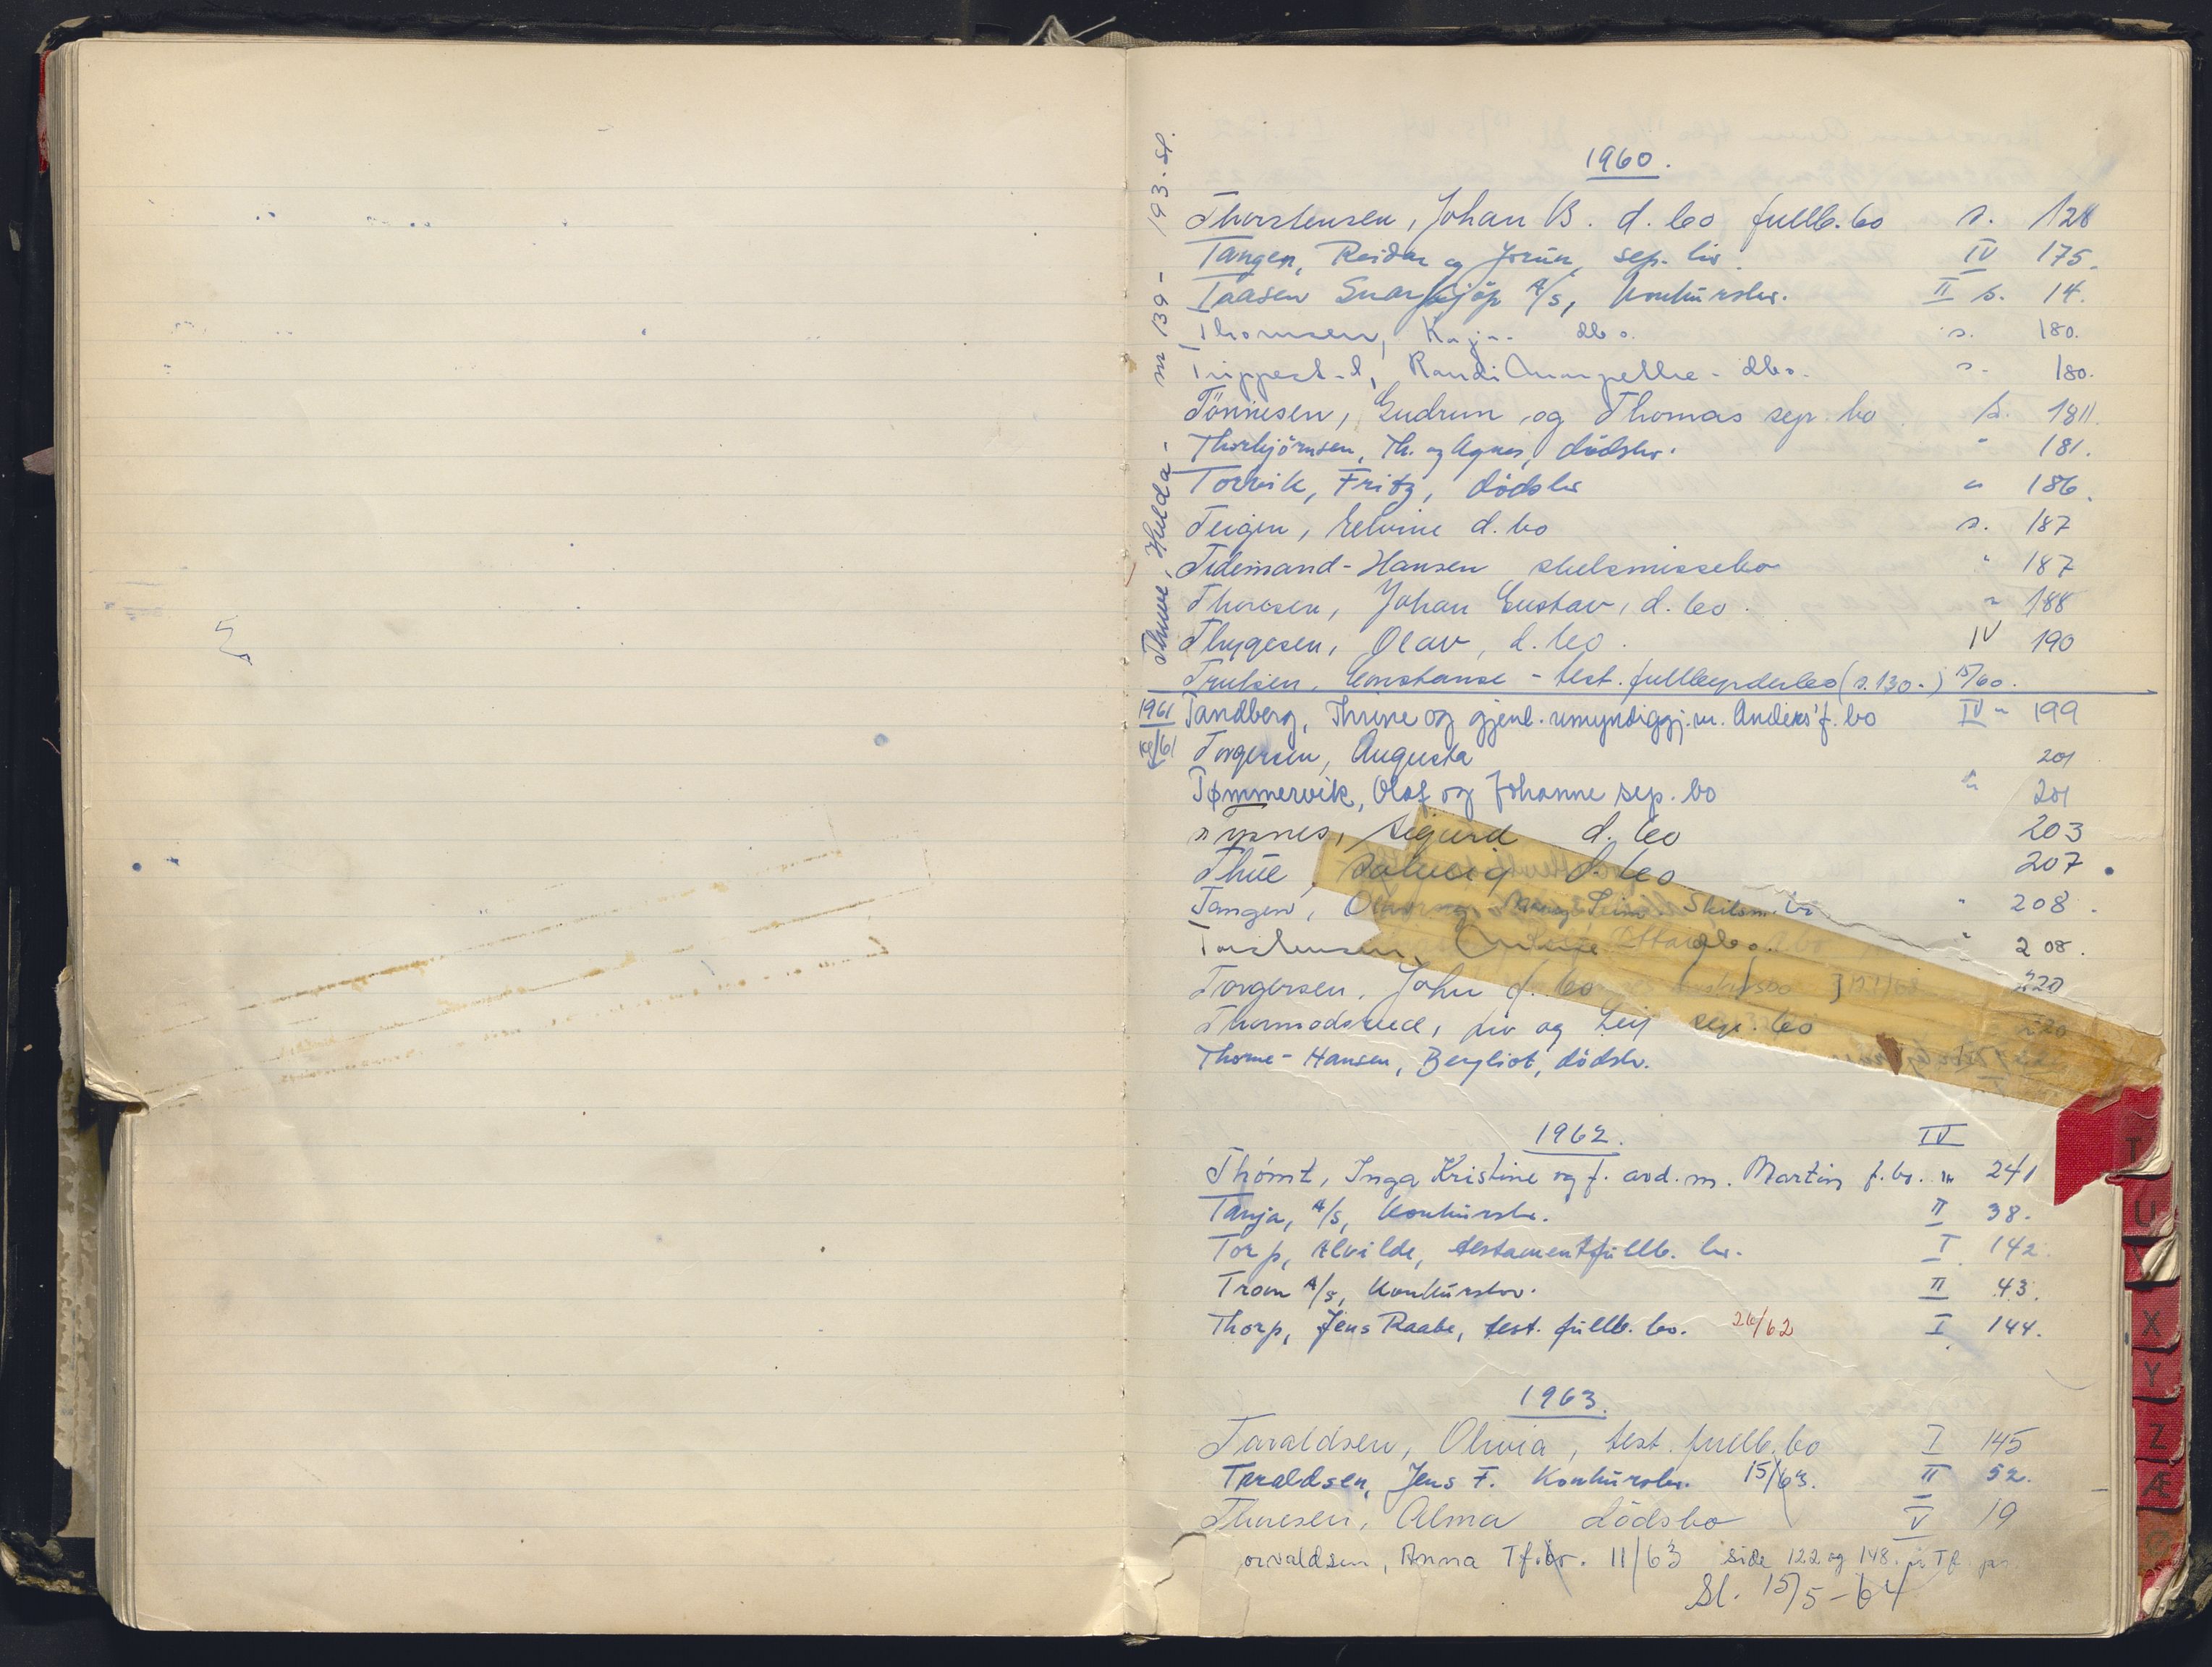 1960.
Thorstensen, Johan B. d. bo fullb. bo s. 128
Tangen, Reidar og Jorun, sep. bo IV 175.
Taasen Snarkjöp A/S, Konkursbo. II s. 14.
Thomsen, Kaja dbo. s. 180.
Trippestad, Randi dbo. s. 180.
Tönnesen, Gudrun og Thomas sep. bo s. 181.
Thorbjörnsen, Th. og Agnes, dödsbo. " 181.
Torvik, Fritz, dödsbo " 186.
Teigen, Elvine d. bo s. 187
Tidemand-Hansen skilsmissebo " 187
Thoresen, Johan Gustav, d. bo. " 188
Thygesen, Olav, d. bo. IV 190
Trulsen, Constanse - test. fullbyrderbo (s. 130-) 15/60.
Thuve, Hulda - nr 139 - 193. sl.
1961 Tandberg, Thrine og gjenl. umyndiggj. m. Anders' f. bo IV " 199
/61 Torgersen, Augusta 201
Tømmervik, Olaf og Johanne sep. bo " 201
Tysnes, Sigurd d. bo 203
Thue, Solveig d. bo 207.
Tangen, Skilsm. bo " 208.
Torstensen, dbo. " 208.
Torgersen, John d. bo 220
Thormodsrud, Liv og Leif sep. bo 220
Thorne-Hansen, Bergliot, dödsbo.
1962. IV
Thömt, Inga Kristine og f. avd. m. Martin f. bo. " 241
Tanja, A/S, Konkursbo. II 38.
Torp, Alvilde, testamentfullb. bo. I 142.
Trom A/S, Konkursbo. II 43.
Thorp, Jens Raabe, test. fullb. bo. 26/62 I 144.
1963.
Taraldsen, Olivia, test. fullb. bo I 145
Taraldsen, Jens F. Konkursbo. 15/63. II 52.
Thoresen, Alma dödsbo V 19
orvaldsen, Anna T.f.bo. 11/63 side 122 og 148.
Sl. 15/5-64
T
U
X
Y
Z
Æ